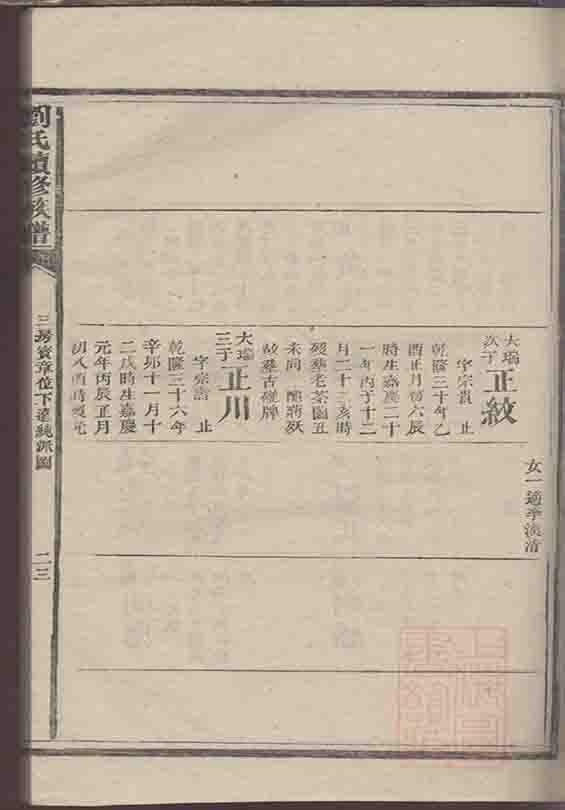 劉氏續修族譜
三房寳章位下達純派圖
二三
女一適李淡清
大瑞
次子
正紋
字宗貴 止
乾隆三十年乙
酉正月初六辰
時生嘉慶二十
一年丙子十二
月二十 亥時
歿葬老茶園丑
未向 
故葬古碰牌
大瑞
三子
正川
字宗 止
乾隆三十六年
辛卯十一月十
二戌時生嘉慶
元年丙辰正月
初八酉時歿